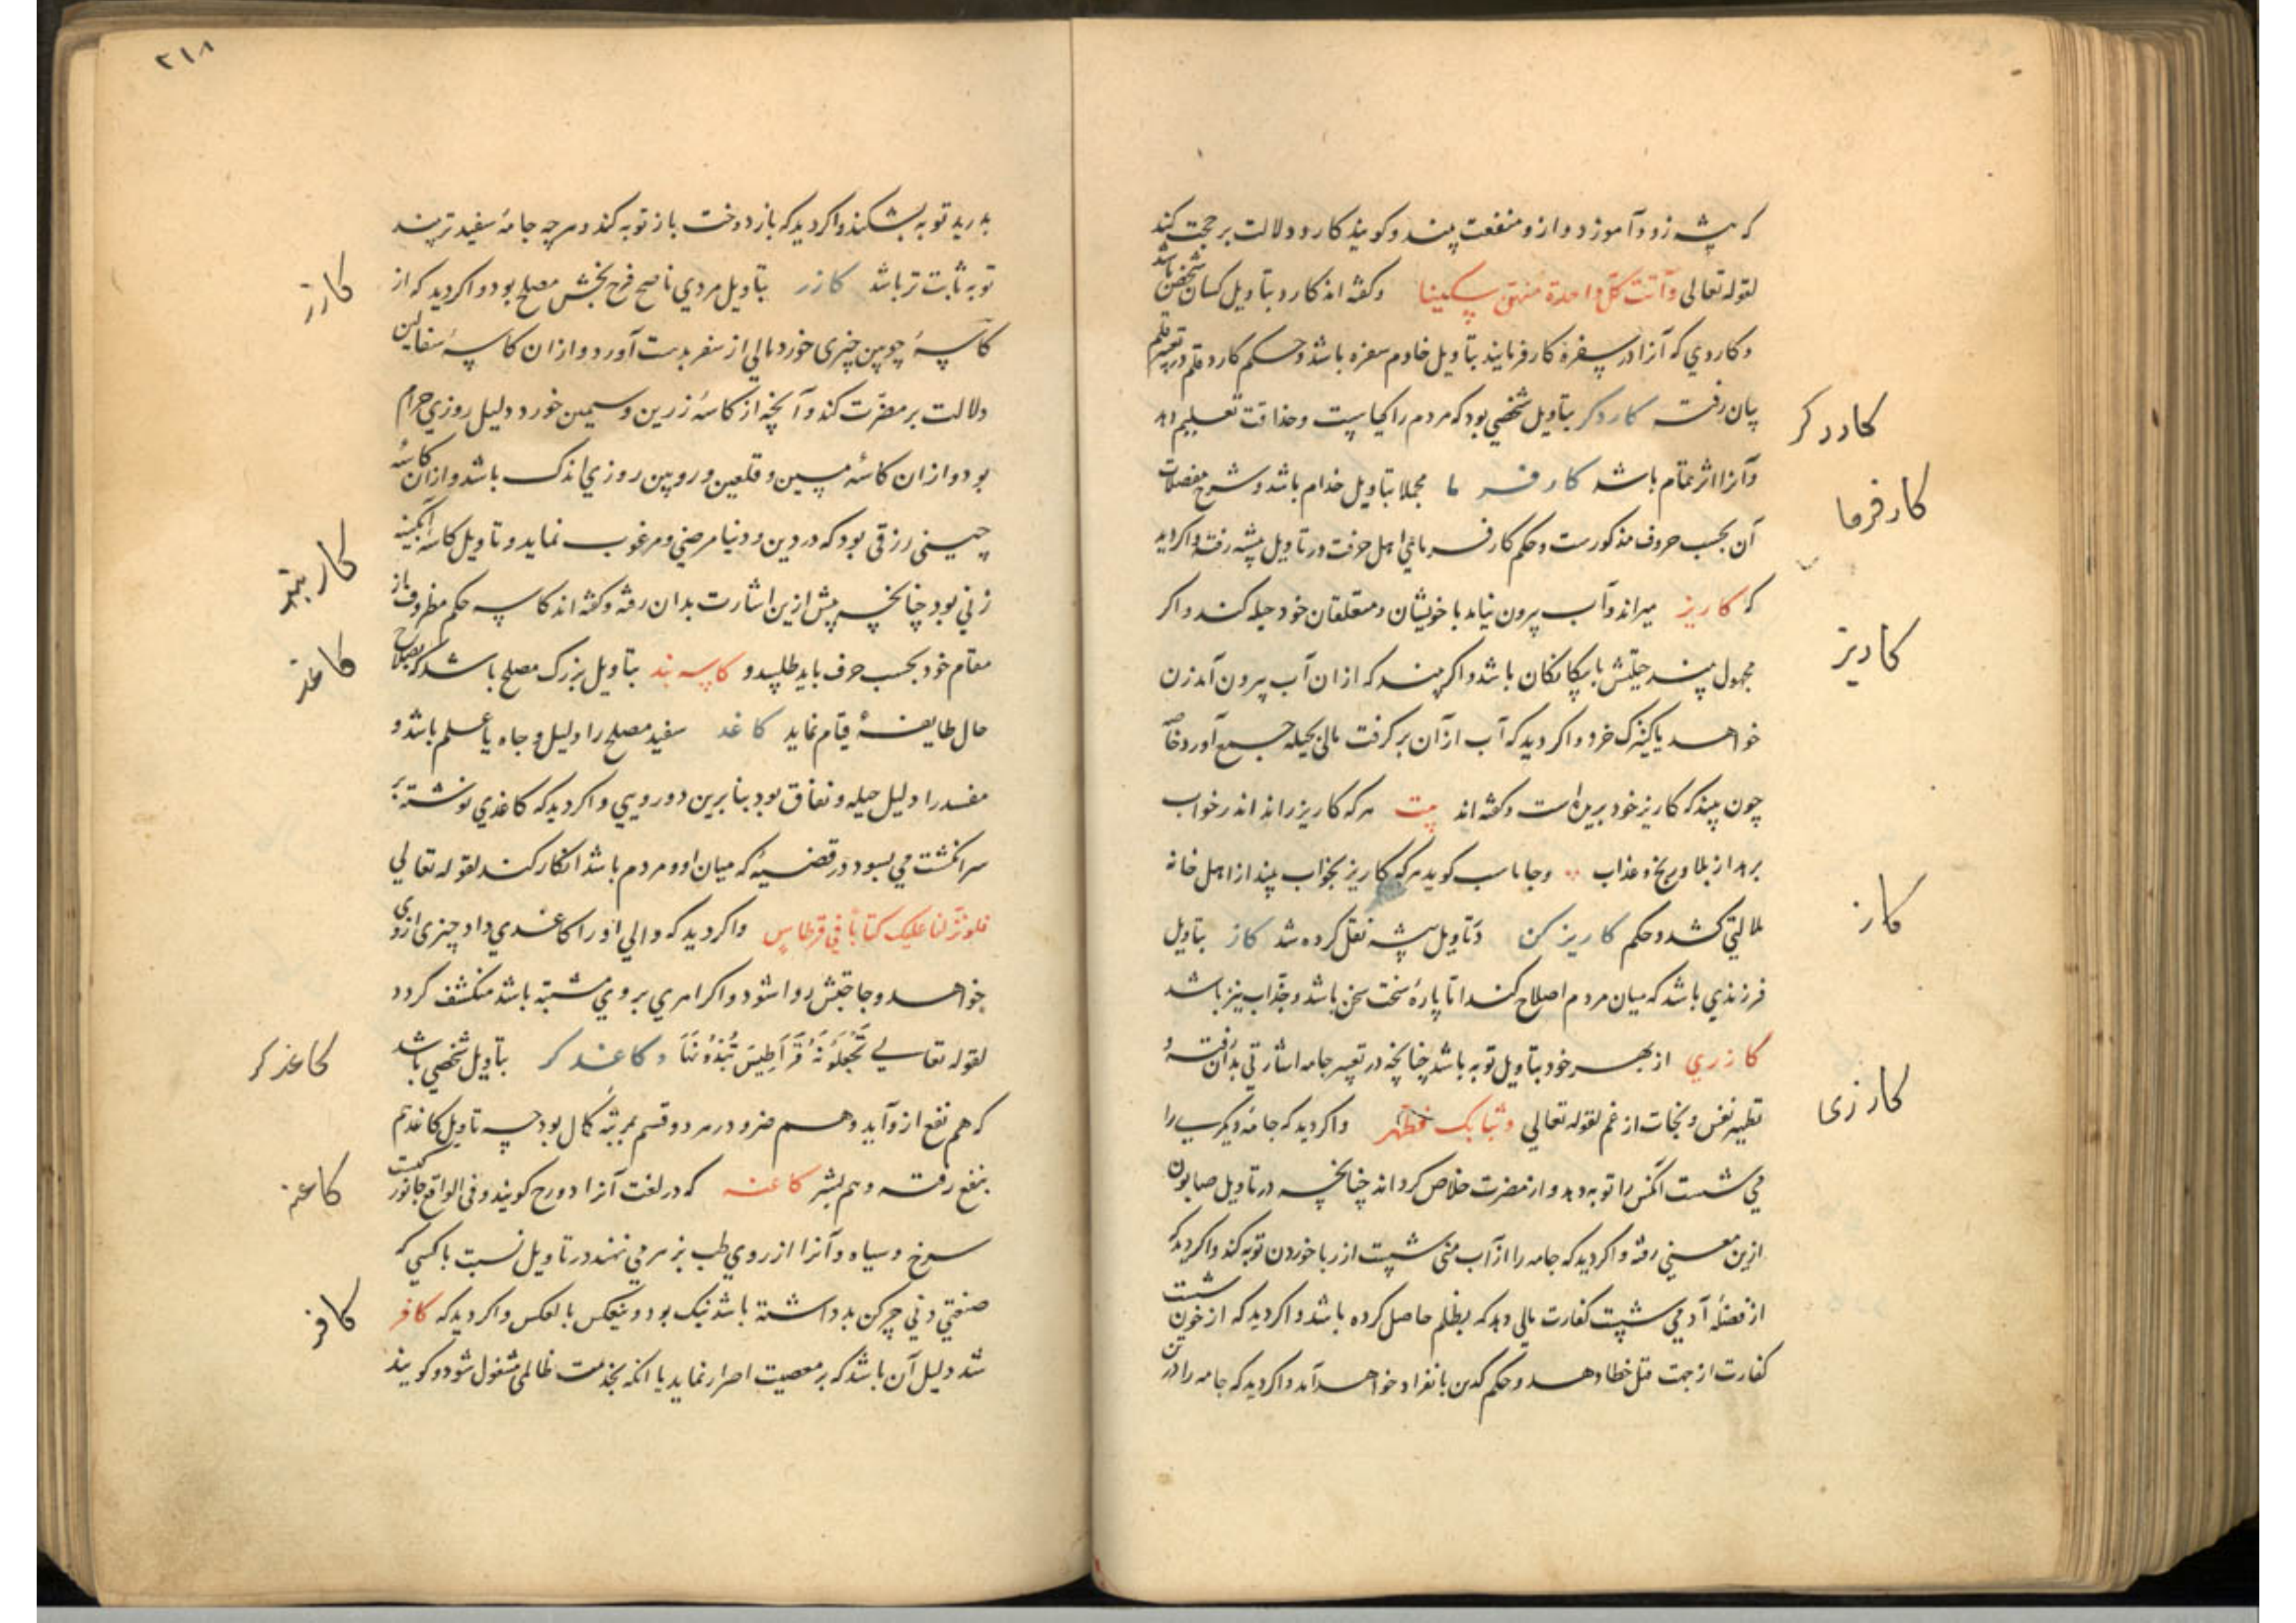 که پیشه زود آموزد و ازو منفعت بیند و کویند کارد دلالت بر حجت کند
لقوله تعالی وآتت کل واحدة منهن سکینا وکفته اند کارد بتاویل کسان شخص باشد
و کاردی که آنرا در سفره کار فرمایند بتاویل خادم سفره باشد و حکم کارد قلم در تعبیر قلم
بیان رفت کاردکر بتاویل شخصی بود که مردم را کیاست و حذاقت تعلیم دهد
کاردکر
و آنرا اثر تمام باشد کارفرما مجملا بتاویل خدام باشد و شرح مفصلات
کارفرما
آن بحسب حروف مذکورست و حکم کارفرمای اهل حرفت در تاویل پیشه رفته و اکر دید
که کاریز میراند و آب بیرون نیاید با خویشان و متعلقان خود حیله کند و اکر
کاریز
مجهول بیند حیلتش با بیکانکان باشد و اکر بیند که از ان آب بیرون آمد زن
خواهد یا کنیزک خرد و اکر دید که آب از آن بر کرفت مالی بحیله جمع آورد خاصه
چون بیند که کاریز خود بریده است وکفته اند بیت هر که کاریز راند اندر خواب
برهد از بلا و رنج و عذاب وجاماسب کوید هر که کاریز بخواب بیند از اهل خانه
ملالتی کشد و حکم کاریز کن در تاویل پیشه نقل کرده شد کاز بتاویل
کاز
فرزندی باشد که میان مردم اصلاح کند اما پاره سخت سخن باشد و جذاب نیز باشد
کازری از بهر خود بتاویل توبه باشد چنانچه در تعبیر جامه اشارتی بدان رفته و
کازری
تطهیر نفس و نجات از غم لقوله تعالی وثیابک فطهر و اکر دید که جامه دیکری را
می شست آنکس را توبه دهد و از مضرت خلاص کرداند چنانچه در تاویل صابون
ازین معنی رفته و اکر دید که جامه را از آب منی شست از ربا خوردن توبه کند و اکر دید که
از فضله آدمی شست کفارت مالی دهد که بظلم حاصل کرده باشد و اکر دید که از خون شست
کفارت از جهت قتل خطا دهد و حکم کدین بانفراد خواهد آمد و اکر دید که جامه را در تن
۲۱۸
بدرید توبه بشکند و اکر دید که باز دوخت باز توبه کند و هر چه جامه سفید تر بیند
توبه ثابت تر باشد کازر بتاویل مردی ناصح فرح بخش مصلح بود و اکر دید که از
کازر
کاسه چوبین چیزی خورد مالی از سفر بدست آورد و از ان کاسه سفالین
دلالت بر مضرت کند و آنچه از کاسه زرین و سیمین خورد دلیل روزی حرام
بود و از ان کاسه مسین و قلعین و رویین روزی اندک باشد و از ان کاسه
چینی رزقی بود که در دین و دنیا مرضی و مرغوب نماید و تاویل کاسه آبکینه
زنی بود چنانچه پیش ازین اشارت بدان رفته وکفته اند کاسه حکم مظروف از
مقام خود بحسب حرف باید طلبید و کاسه بند بتاویل بزرک مصلح باشد که بصلاح
حال طایفه قیام نماید کاغد سفید مصلح را دلیل وجاه یا علم باشد و
کاغد
مفسد را دلیل حیله و نفاق بود بنا برین دورویی و اکر دید که کاغدی نوشته بر
سر انکشت می بسود در قضیه که میان او و مردم باشد انکار کند لقوله تعالی
فلو نزلنا علیک کتابا فی قرطاس و اکر دید که والی او را کاغدی داد چیزی از وی
خواهد و حاجتش روا شود و اکر امری بر وی مشتبه باشد منکشف کردد
لقوله تعالی تَجْعَلُونَهُ قَرَاطِيسَ تُبْدُونَهَا و کاغدکر بتاویل شخصی باشد
کاغدکر
که هم نفع ازو آید و هم ضر و در هر دو قسم بمرتبه کمال بود چه تاویل کاغد هم
بنفع رفته و هم بشر کاغنه که در لغت آنرا دورح کویند و فی الواقع جانوریست
کاغنه
سرخ و سیاه و آنرا از روی طب بزهر می نهند در تاویل نسبت با کسی که
صنعتی دنی چرکن بد داشته باشد نیک بود و بنعکس بالعکس و اکر دید که کافر
کافر
شد دلیل آن باشد که بر معصیت اصرار نماید یا آنکه بخدمت ظالمی مشغول شود و کویند